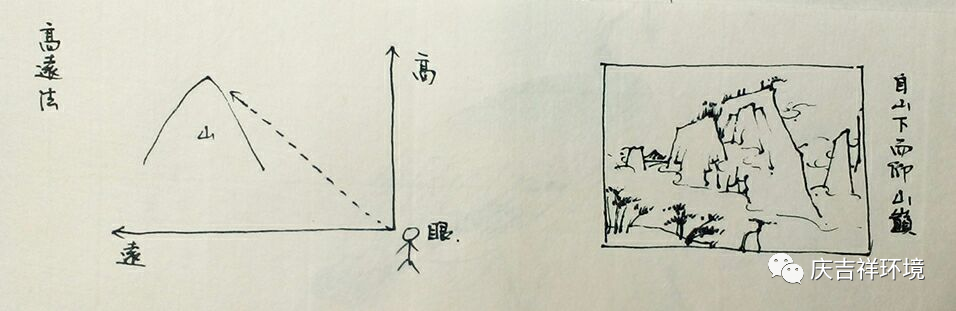 高遠法
山
高
遠
眼.
自山下而仰山巔
庆吉祥环境